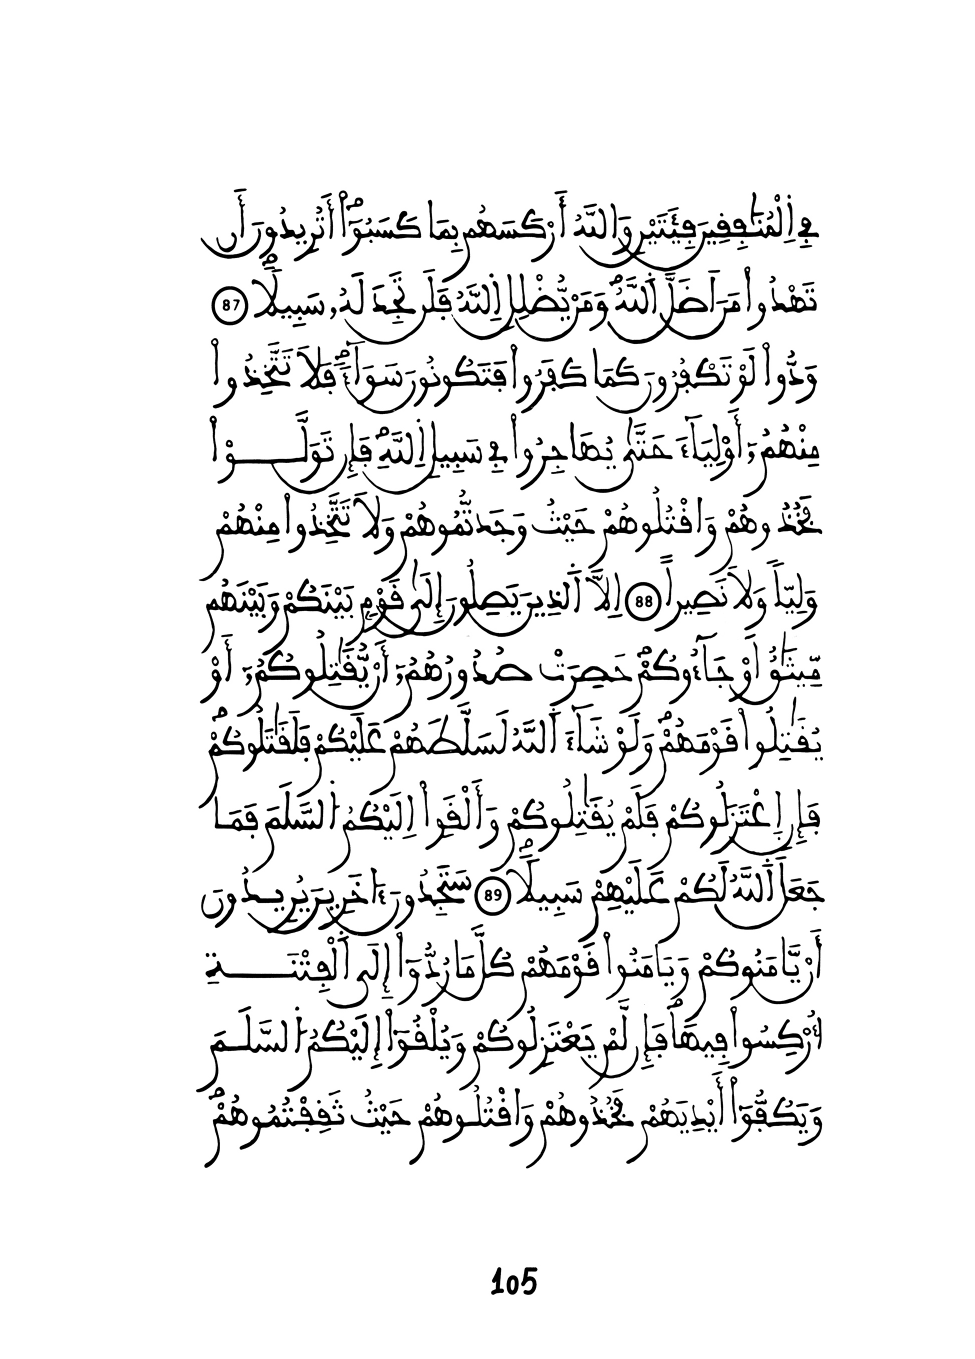 فِے اِ۬لْمُنَٰفِقِينَ فِئَتَيْنِ وَاللَّهُ أَرْكَسَهُم بِمَا كَسَبُوٓاْۖ أَتُرِيدُونَ أَن
تَهْدُواْ مَنَ اَضَلَّ اَ۬للَّهُۖ وَمَنْ يُّضْلِلِ اِ۬للَّهُ فَلَن تَجِدَ لَهُۥ سَبِيلاٗۖ 87
وَدُّواْ لَوْ تَكْفُرُونَ كَمَا كَفَرُواْ فَتَكُونُونَ سَوَآءٗۖ فَلَا تَتَّخِذُواْ
مِنْهُمُۥٓ أَوْلِيَآءَ حَتَّىٰ يُهَاجِرُواْ فِے سَبِيلِ اِ۬للَّهِۖ فَإِن تَوَلَّوْاْ
فَخُذُوهُمْ وَاقْتُلُوهُمْ حَيْثُ وَجَدتُّمُوهُمْ وَلَا تَتَّخِذُواْ مِنْهُمْ
وَلِيّاٗ وَلَا نَصِيراً 88 اِلَّا اَ۬لذِينَ يَصِلُونَ إِلَىٰ قَوْمِۢ بَيْنَكُمْ وَبَيْنَهُم
مِّيثَٰقٌ أَوْ جَآءُوكُمْ حَصِرَتْ صُدُورُهُمُۥٓ أَنْ يُّقَٰتِلُوكُمُۥٓ أَوْ
يُقَٰتِلُواْ قَوْمَهُمْۖ وَلَوْ شَآءَ اَ۬للَّهُ لَسَلَّطَهُمْ عَلَيْكُمْ فَلَقَٰتَلُوكُمْۖ
فَإِنِ اِ۪عْتَزَلُوكُمْ فَلَمْ يُقَٰتِلُوكُمْ وَأَلْقَوِاْ اِلَيْكُمُ اُ۬لسَّلَمَ فَمَا
جَعَلَ اَ۬للَّهُ لَكُمْ عَلَيْهِمْ سَبِيلاٗۖ 89 سَتَجِدُونَ ءَاخَرِينَ يُرِيدُونَ
أَنْ يَّامَنُوكُمْ وَيَامَنُواْ قَوْمَهُمْ كُلَّ مَا رُدُّوٓاْ إِلَى اَ۬لْفِتْنَةِ
أُرْكِسُواْ فِيهَاۖ فَإِن لَّمْ يَعْتَزِلُوكُمْ وَيُلْقُوٓاْ إِلَيْكُمُ اُ۬لسَّلَمَ
وَيَكُفُّوٓاْ أَيْدِيَهُمْ فَخُذُوهُمْ وَاقْتُلُوهُمْ حَيْثُ ثَقِفْتُمُوهُمْۖ
105